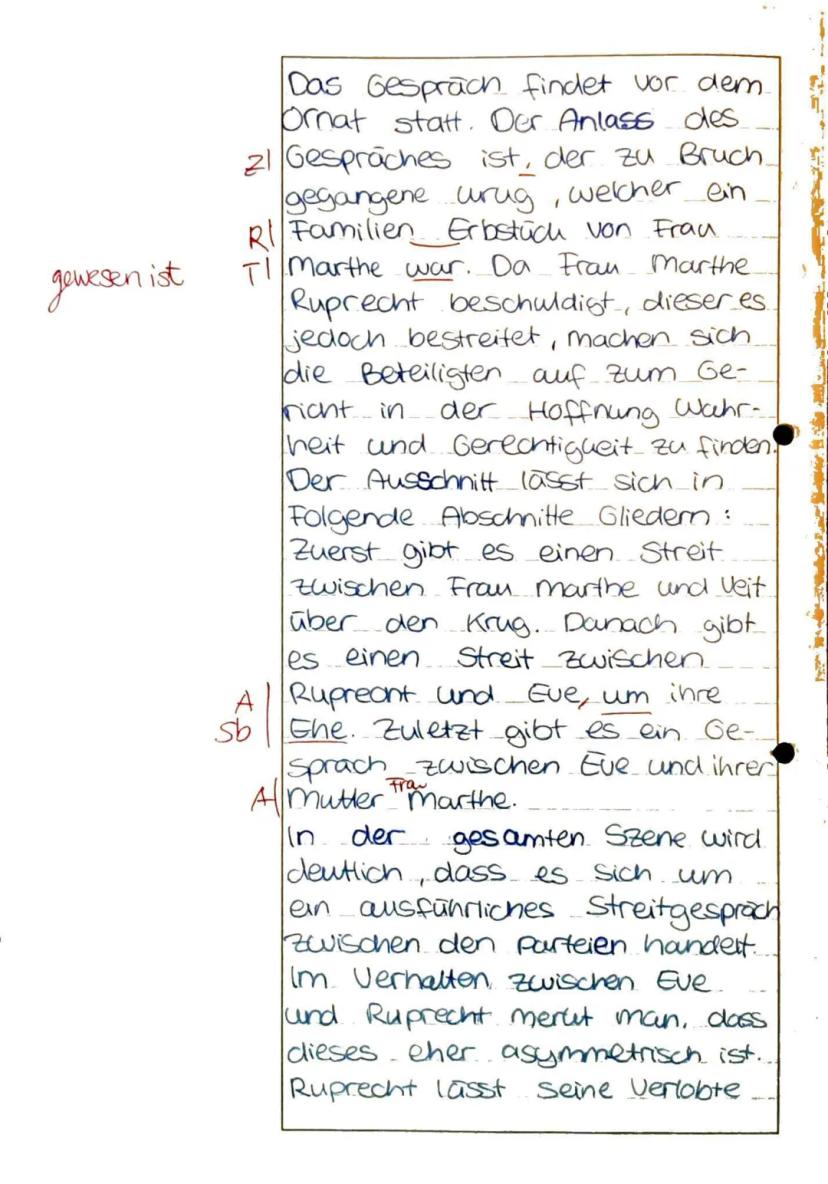 Das Gespräch findet vor dem
Ornat statt. Der Anlass des
Z| Gespräches ist, der zu Bruch
gegangene Krug, welcher ein
R| Familien Erbstück von Frau
gewesen ist T| Marthe war. Da Frau Marthe
Ruprecht beschuldigt, dieser es
jedoch bestreitet, machen sich
die Beteiligten auf zum Ge-
richt in der Hoffnung Wahr-
heit und Gerechtigkeit zu finden.
Der Ausschnitt lässt sich in
Folgende Abschnitte Gliedern:
Zuerst gibt es einen Streit
zwischen Frau Marthe und Veit
über den Krug. Danach gibt
es einen Streit zwischen
A| Ruprecht und Eve, um ihre
Sb| Ehe. Zuletzt gibt es ein Ge-
spräch zwischen Eve und ihrer
A| Mutter Frau Marthe.
In der gesamten Szene wird
deutlich, dass es sich um
ein ausführliches Streitgespräch
zwischen den Parteien handelt.
Im Verhalten zwischen Eve
und Ruprecht merkt man, dass
dieses eher asymmetrisch ist.
Ruprecht lässt seine Verlobte